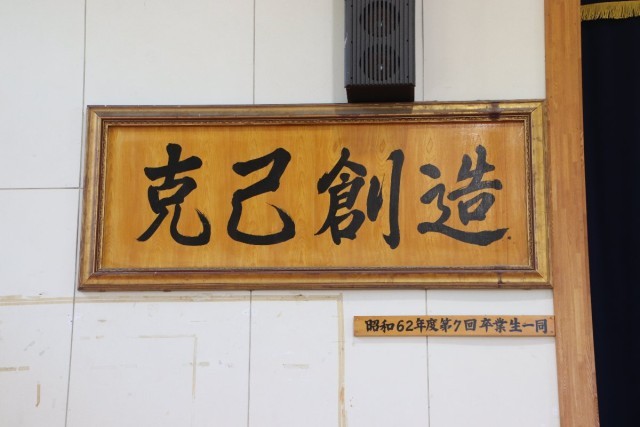 克己創造
昭和62年度第7回卒業生一同